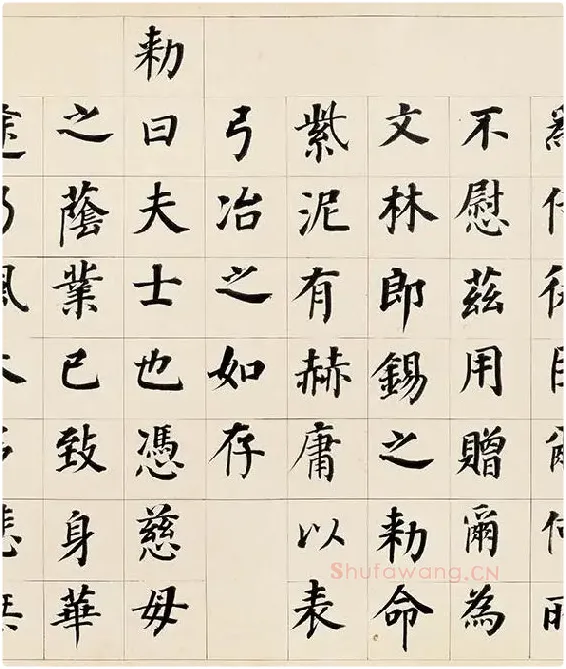 不慰茲用贈爾為
文林郎錫之勑命
紫泥有赫庸以表
弓冶之如存
勑曰夫士也憑慈母
之蔭業已致身華
Shufawang.CN